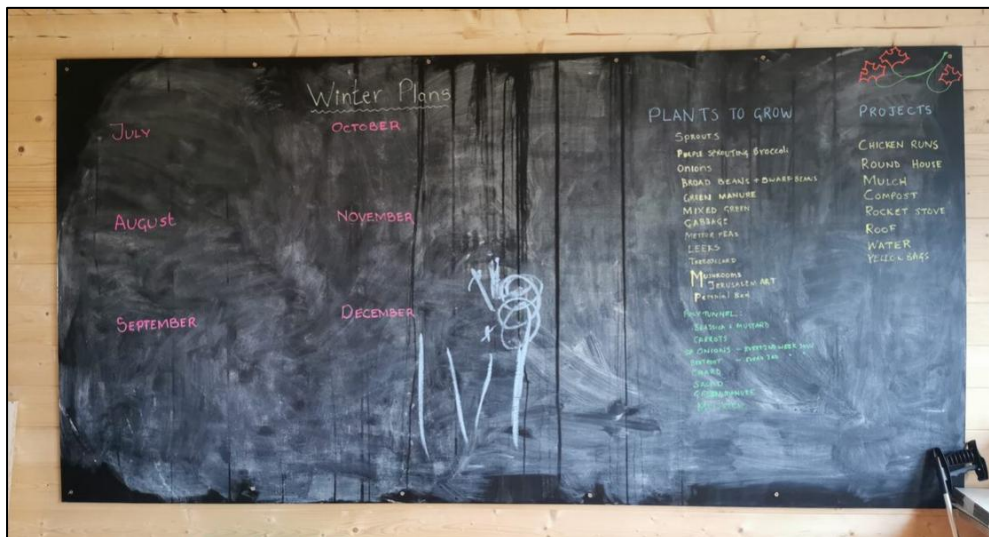 Winter Plans
July
August
September
October
November
December
PLANTS TO GROW
SPROUTS
PURPLE SPROUTING BROCCOLI
ONIONS
BROAD BEANS + DWARF BEANS
GREEN MANURE
MIXED GREEN
CABBAGE
LEEKS
MUSHROOMS
JERUSALEM ART
POLYTUNNEL
MUSTARD
CARROTS
ONIONS
CHARD
SALAD
PROJECTS
CHICKEN RUNS
ROUND HOUSE
MULCH
COMPOST
ROCKET STOVE
ROOF
WATER
YELLOW BAGS